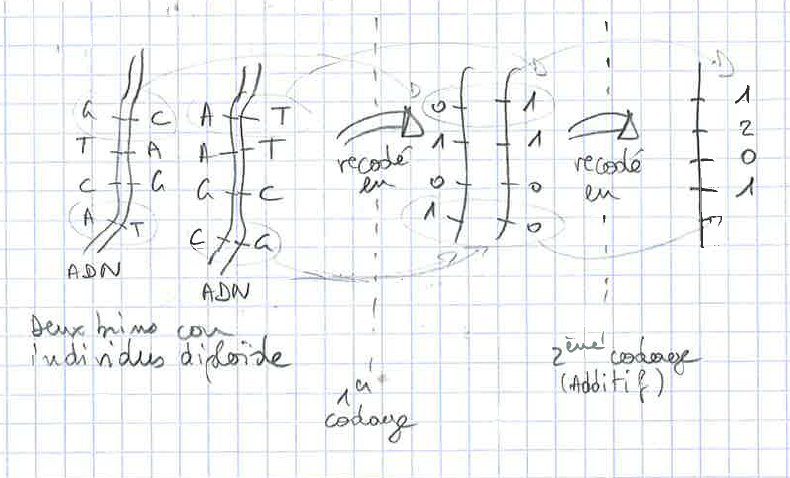 G C A T 0 1 1
T A A T 1 1 2
C G G C 0 0 0
A T C G 1 0 1
recodé
en
recodé
en
ADN
ADN
Deux brins
individus diploïde
1er
codage
2ème codage
(Additif)